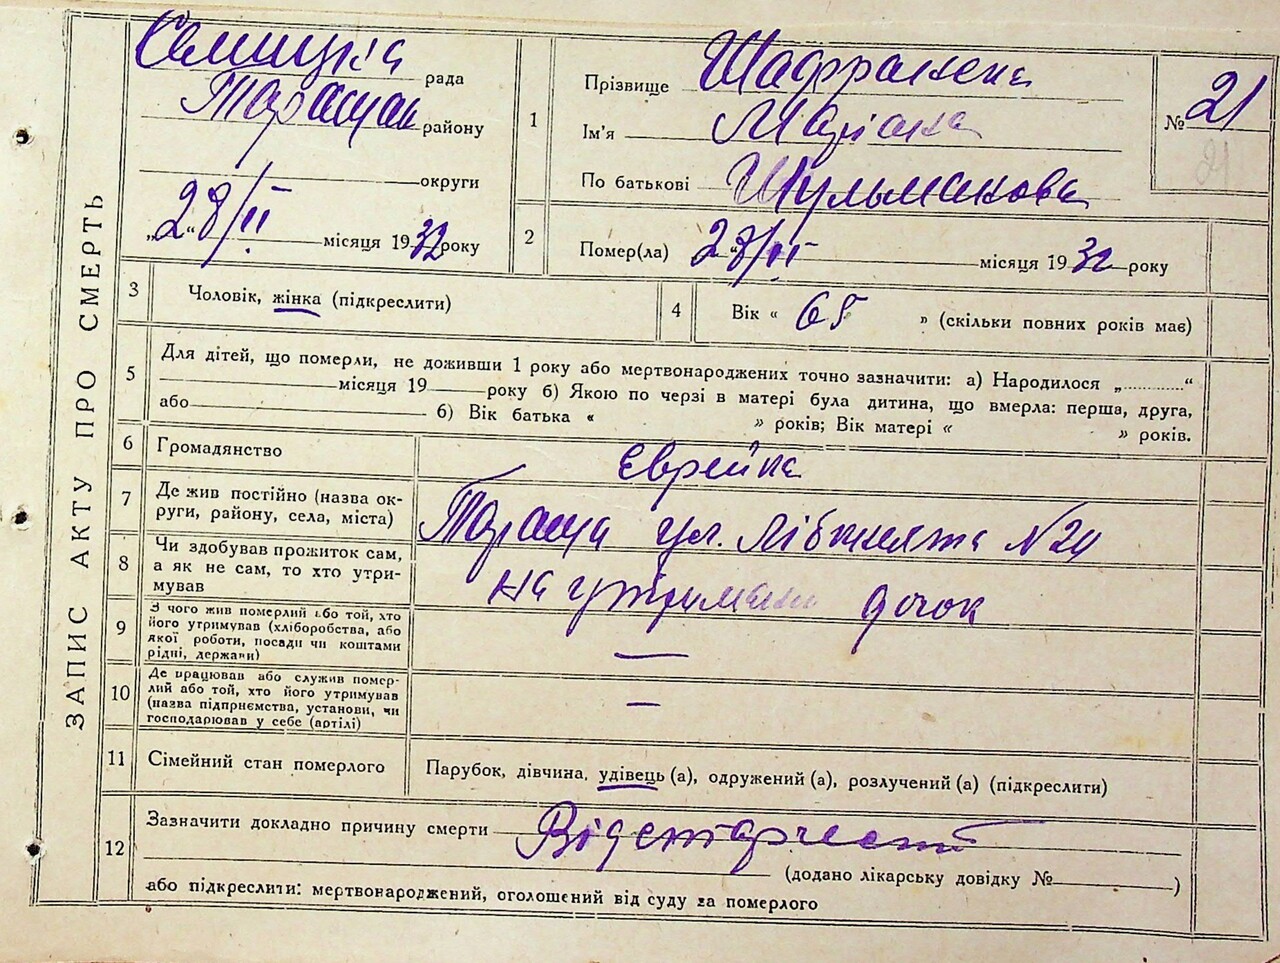 ЗАПИС АКТУ ПРО СМЕРТЬ
Селищна рада
Таращан району
округи
„28/II“ місяця 1932 року
1
Прізвище
Ім'я
По батькові Шульманова
№ 21
21
2
Помер(ла) 28/II місяця 1932 року
3
Чоловік, жінка (підкреслити)
4
Вік « 65 » (скільки повних років має)
5
Для дітей, що померли, не доживши 1 року або мертвонароджених точно зазначити: а) Народилося „............“
місяця 19 року б) Якою по черзі в матері була дитина, що вмерла: перша, друга,
або б) Вік батька « » років; Вік матері « » років.
6
Громадянство Єврейка
7
Де жив постійно (назва ок-
руги, району, села, міста)
Тараща ул. Лібкнехта №24
8
Чи здобував прожиток сам,
а як не сам, то хто утри-
мував
на утриманні дочок
9
З чого жив померлий або той, хто
його утримував (хліборобства, або
якої роботи, посади чи коштами
рідні, держави)
—
10
Де працював або служив помер-
лий або той, хто його утримував
(назва підприємства, установи, чи
господарював у себе (артілі)
—
11
Сімейний стан померлого
Парубок, дівчина, удівець (а), одружений (а), розлучений (а) (підкреслити)
12
Зазначити докладно причину смерти Від старчести
(додано лікарську довідку № )
або підкреслити: мертвонароджений, оголошений від суду за померлого